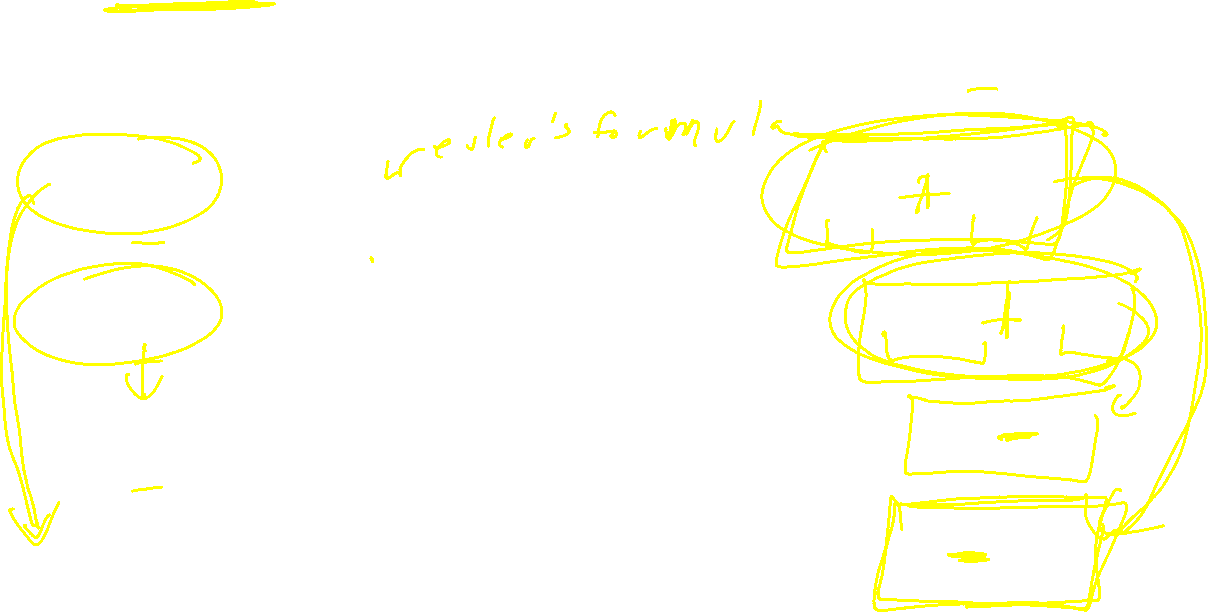 euler's formula
+
+
-
-